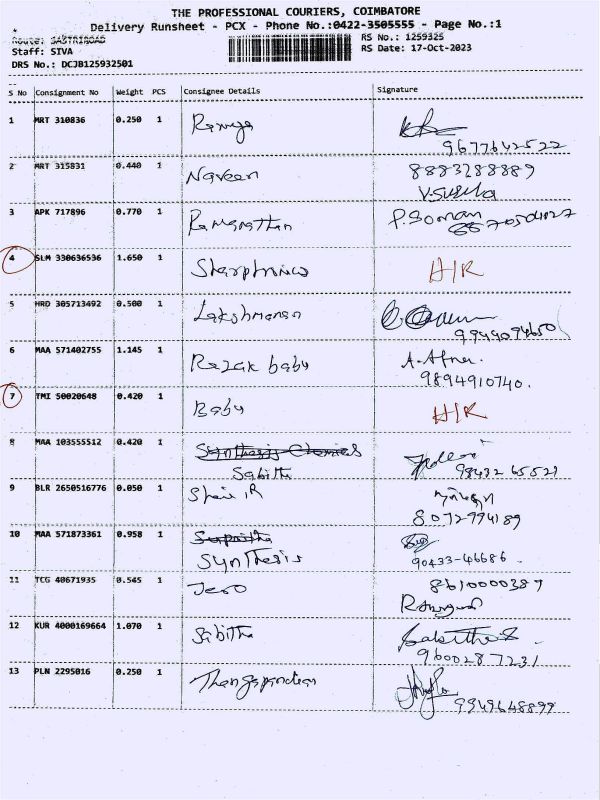 THE PROFESSIONAL COURIERS, COIMBATORE
Delivery Runsheet - PCX - Phone No.:0422-3505555 - Page No.:1
Route: SASTRIROAD
RS No.: 1259325
Staff: SIVA
RS Date: 17-Oct-2023
DRS No.: DCJB125932501
S No Consignment No Weight PCS Consignee Details Signature
1 MRT 310836 0.250 1 Ramya
9677642522
2 MRT 315831 0.440 1 Naveen 8883288889
V.Susila
3 APK 717896 0.770 1 Ramanathan P.Soman
4 SLM 330636536 1.650 1 Sharptronics H/R
5 HRD 305713492 0.500 1 Lakshmanan
9944094650
6 MAA 571402755 1.145 1 Razak babu A.
9894910740.
7 TMI 50020648 0.420 1 Babu H/R
8 MAA 103555512 0.420 1 Synthesis Chemicals
Sabitha 98432 65521
9 BLR 2650516776 0.050 1
8072994189
10 MAA 571873361 0.958 1
Synthesis 90433-46686.
11 TCG 40671935 0.545 1 Jero 8610000387
12 KUR 4000169664 1.070 1 Sabitha Sabitha S.
9600287231
13 PLN 2295016 0.250 1 Thangapandian
9949648899